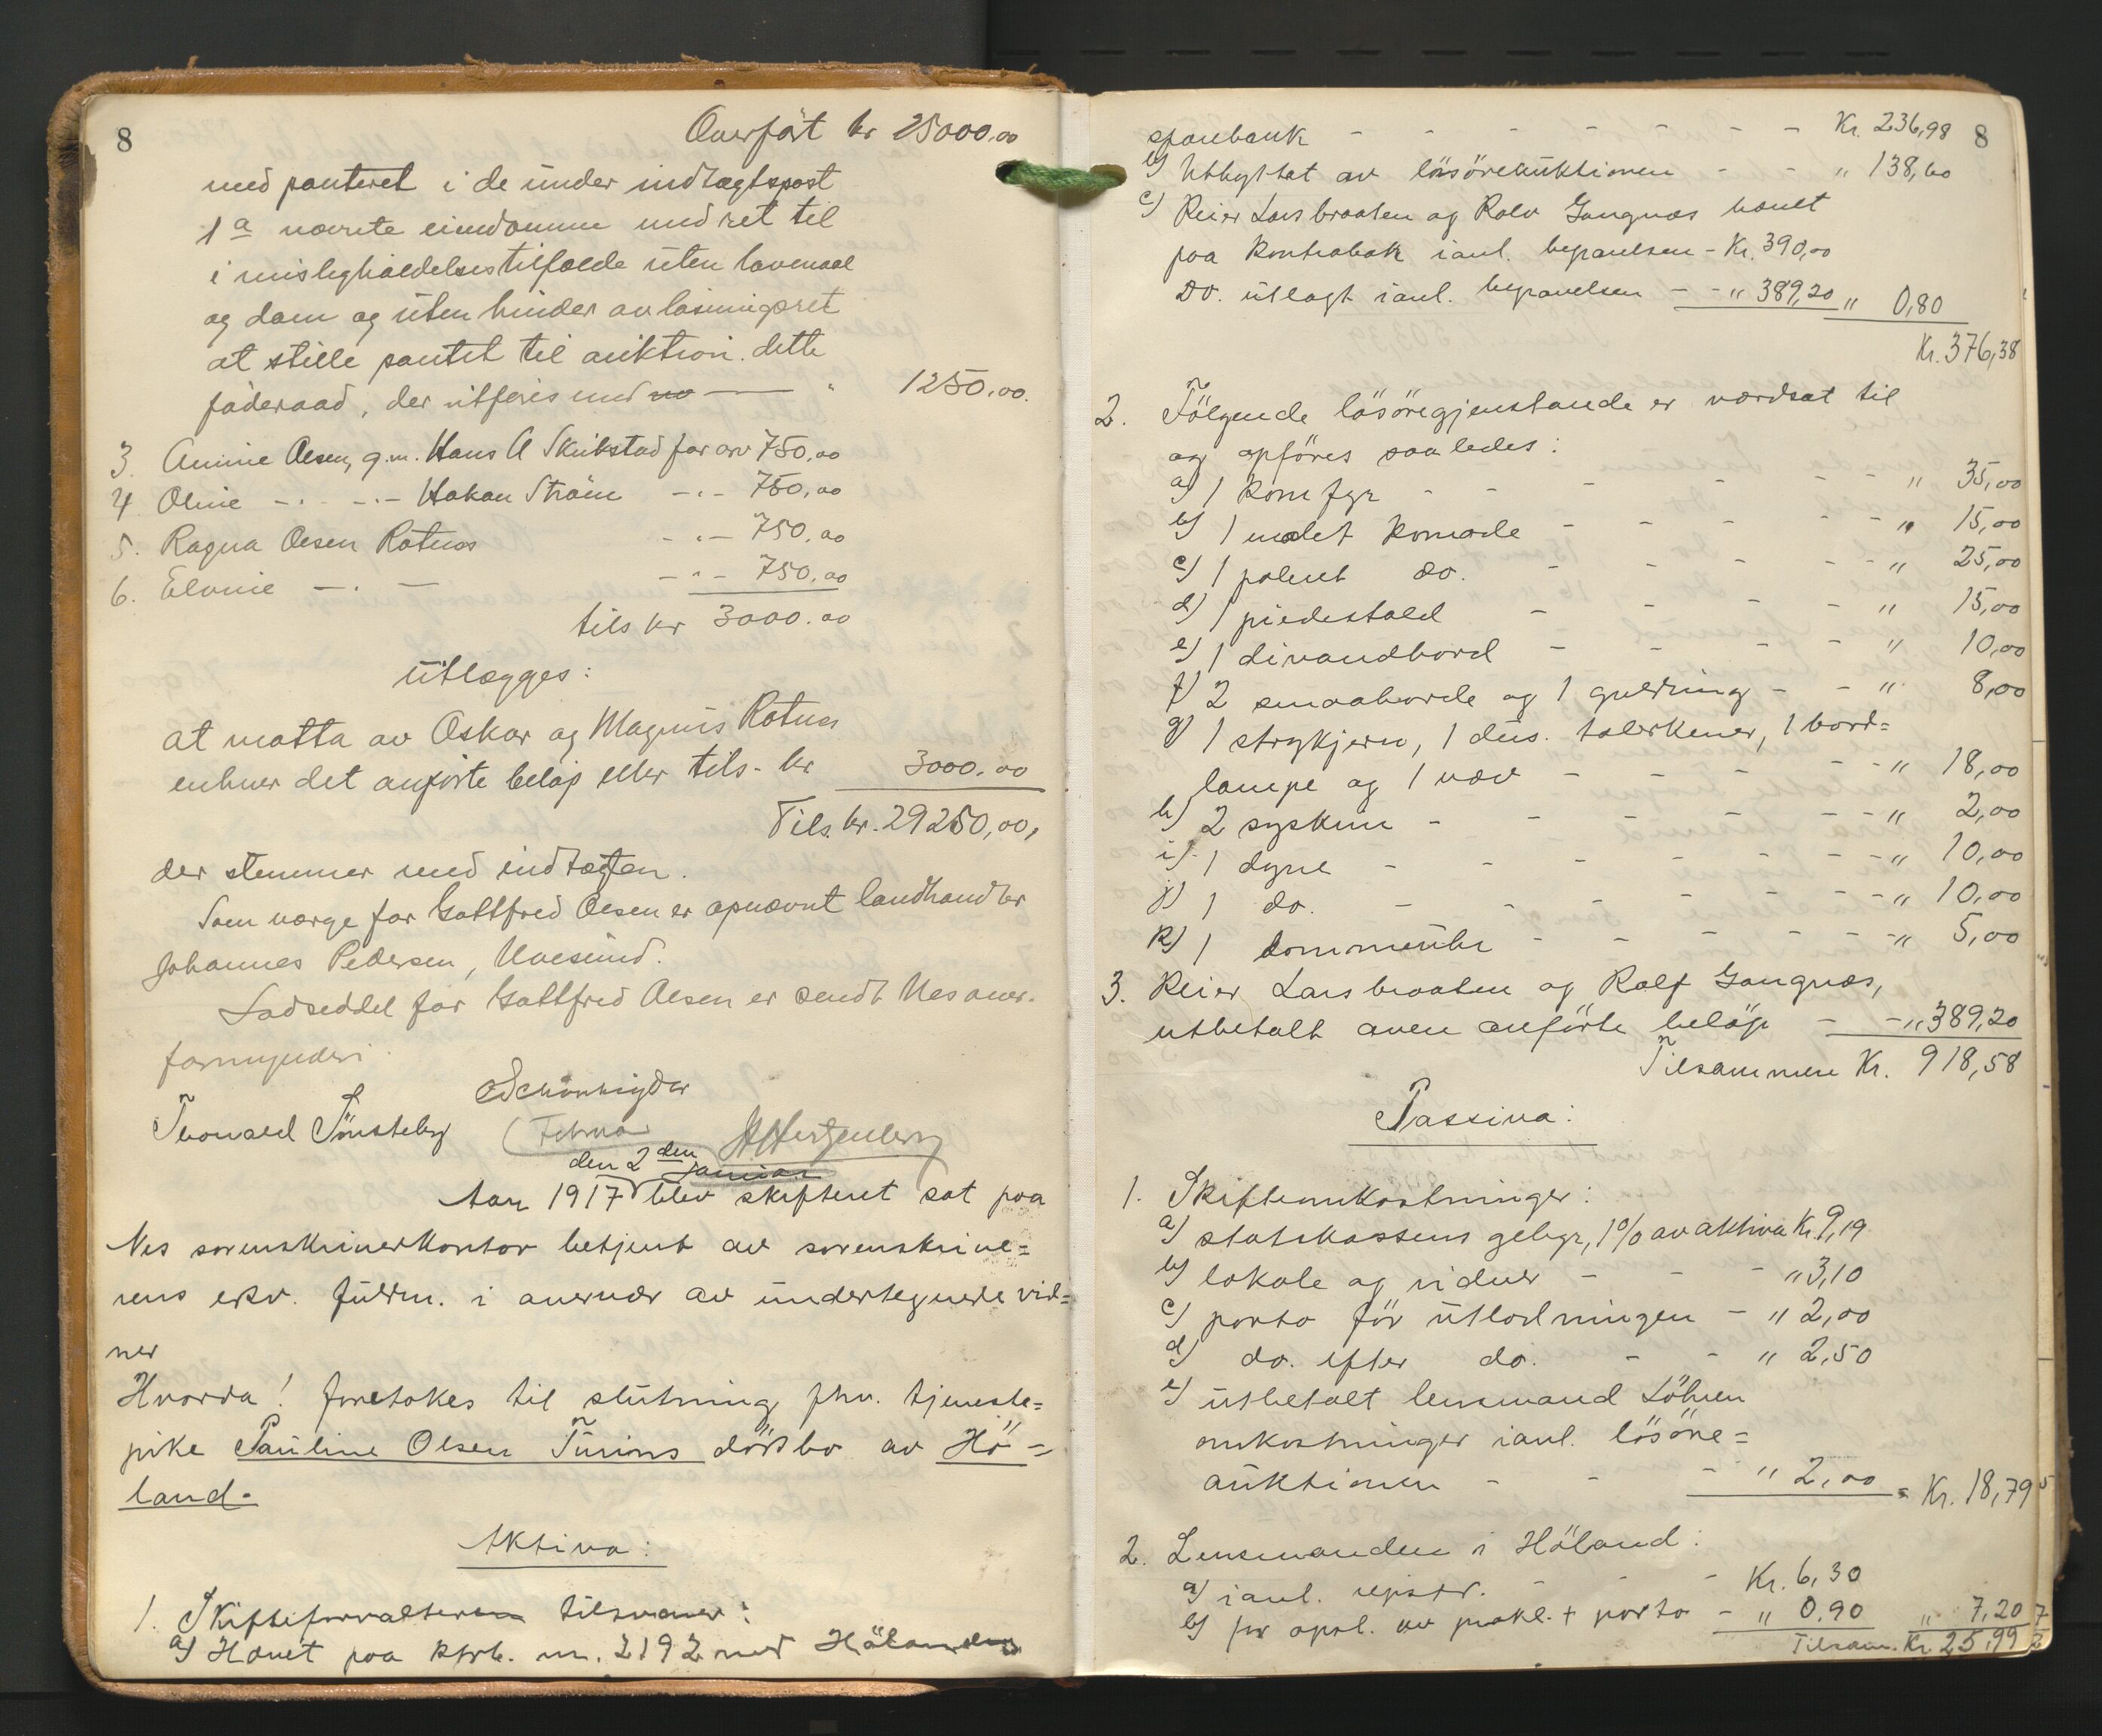 8
Overført kr 25000.00
med panteret i de under indtægtspost
1 a nævnte eiendomme med ret til
i misligholdelsestilfælde uten lovmaal
og dom og uten hinder av løsningsret
at stille pantet til auktion. dette
føderaad, der utføres med — " 1250.00.
3. Annie Olsen, g.m. Hans A Skukstad farsarv 750,00
4 Oline -.- -.- Hakon Strøm -.- 750,00
5. Ragna Olsen Rotnes -.- 750,00
6. Elvine -.- -"- 750,00
tils kr 3000.00
Utlægges:
at motta av Oskar og Magnus Rotnes
enhver det anførte beløp eller tils. kr 3000.00
Tils. kr. 29250,00,
der stemmer med indtægten.
Som værge for Gottfred Olsen er opnævnt landhandler
Johannes Pedersen,
Lodseddel for Gottfred Olsen er sendt Nes over-
formynderi.
Thorvald Tönsteby
Februar
den 2den januar
Aar 1917 blev skifteret sat paa
Nes sorenskriverkontor betjent av sorenskrive=
rens edsv. fuldm. i overvær av undertegnede vid=
ner
Hvorda! foretokes til slutning fhv. tjeneste=
pike Pauline Olsen Turins dödsbo av Hö=
land.
Aktiva:
1. Skifteforvalteren tilsvarer:
a) Hævet paa ktrb. nr. 2192 ved Hölands
sparebank - - - - - - - Kr. 236,98 8
b) Utbyttet av lösöreauktionen - - " 138,60
c) Reier Larsbraaten og Rolv Gangnæs hævet
paa kontrabok i anl. begravelsen - Kr. 390,00
Do. utlagt i anl. begravelsen - - " 389,20 " 0,80
Kr. 376,38
2. Følgende lösöregjenstande er værdsat til
og opföres saaledes:
a) 1 komfyr - - - - - - " 35,00
b) 1 malet komode - - - - - " 15,00
c) 1 polert do. - - - - - " 25,00
d) 1 piedestald - - - - " 15,00
e) 1 divandbord - - - - " 10,00
f) 2 smaaborde og 1 guldring - - " 8,00
g) 1 strykjern, 1 dus. talerkener, 1 bord=
lampe og 1 væv - - - - - " 18,00
h) 2 syskrin - - - - - - " 2,00
i) 1 dyne - - - - - - " 10,00
j) 1 do. - - - - - - " 10,00
k) 1 lommeuhr - - - - - - " 5,00
3. Reier Larsbraaten og Rolf Gangnæs,
utbetalt oven anförte belöp - - " 389,20
Tilsammen Kr. 918,58
Passiva:
1. Skifteomkostninger:
a) statskassens gebyr, 1% av aktiva Kr. 9,19
b) lokale og vidner - - - " 3,10
c) porto för utlodningen - " 2,00
d) do. efter do. - - " 2,50
e) utbetalt lensmand Löhren
omkostninger i anl. lösöre=
auktionen - - - " 2,00 = Kr. 18,79
2. Lensmanden i Höland:
a) i anl. registr. - - - Kr. 6,30
b) for opsl. av prokl. + porto - " 0,90 " 7,20
Tilsam. Kr. 25,99